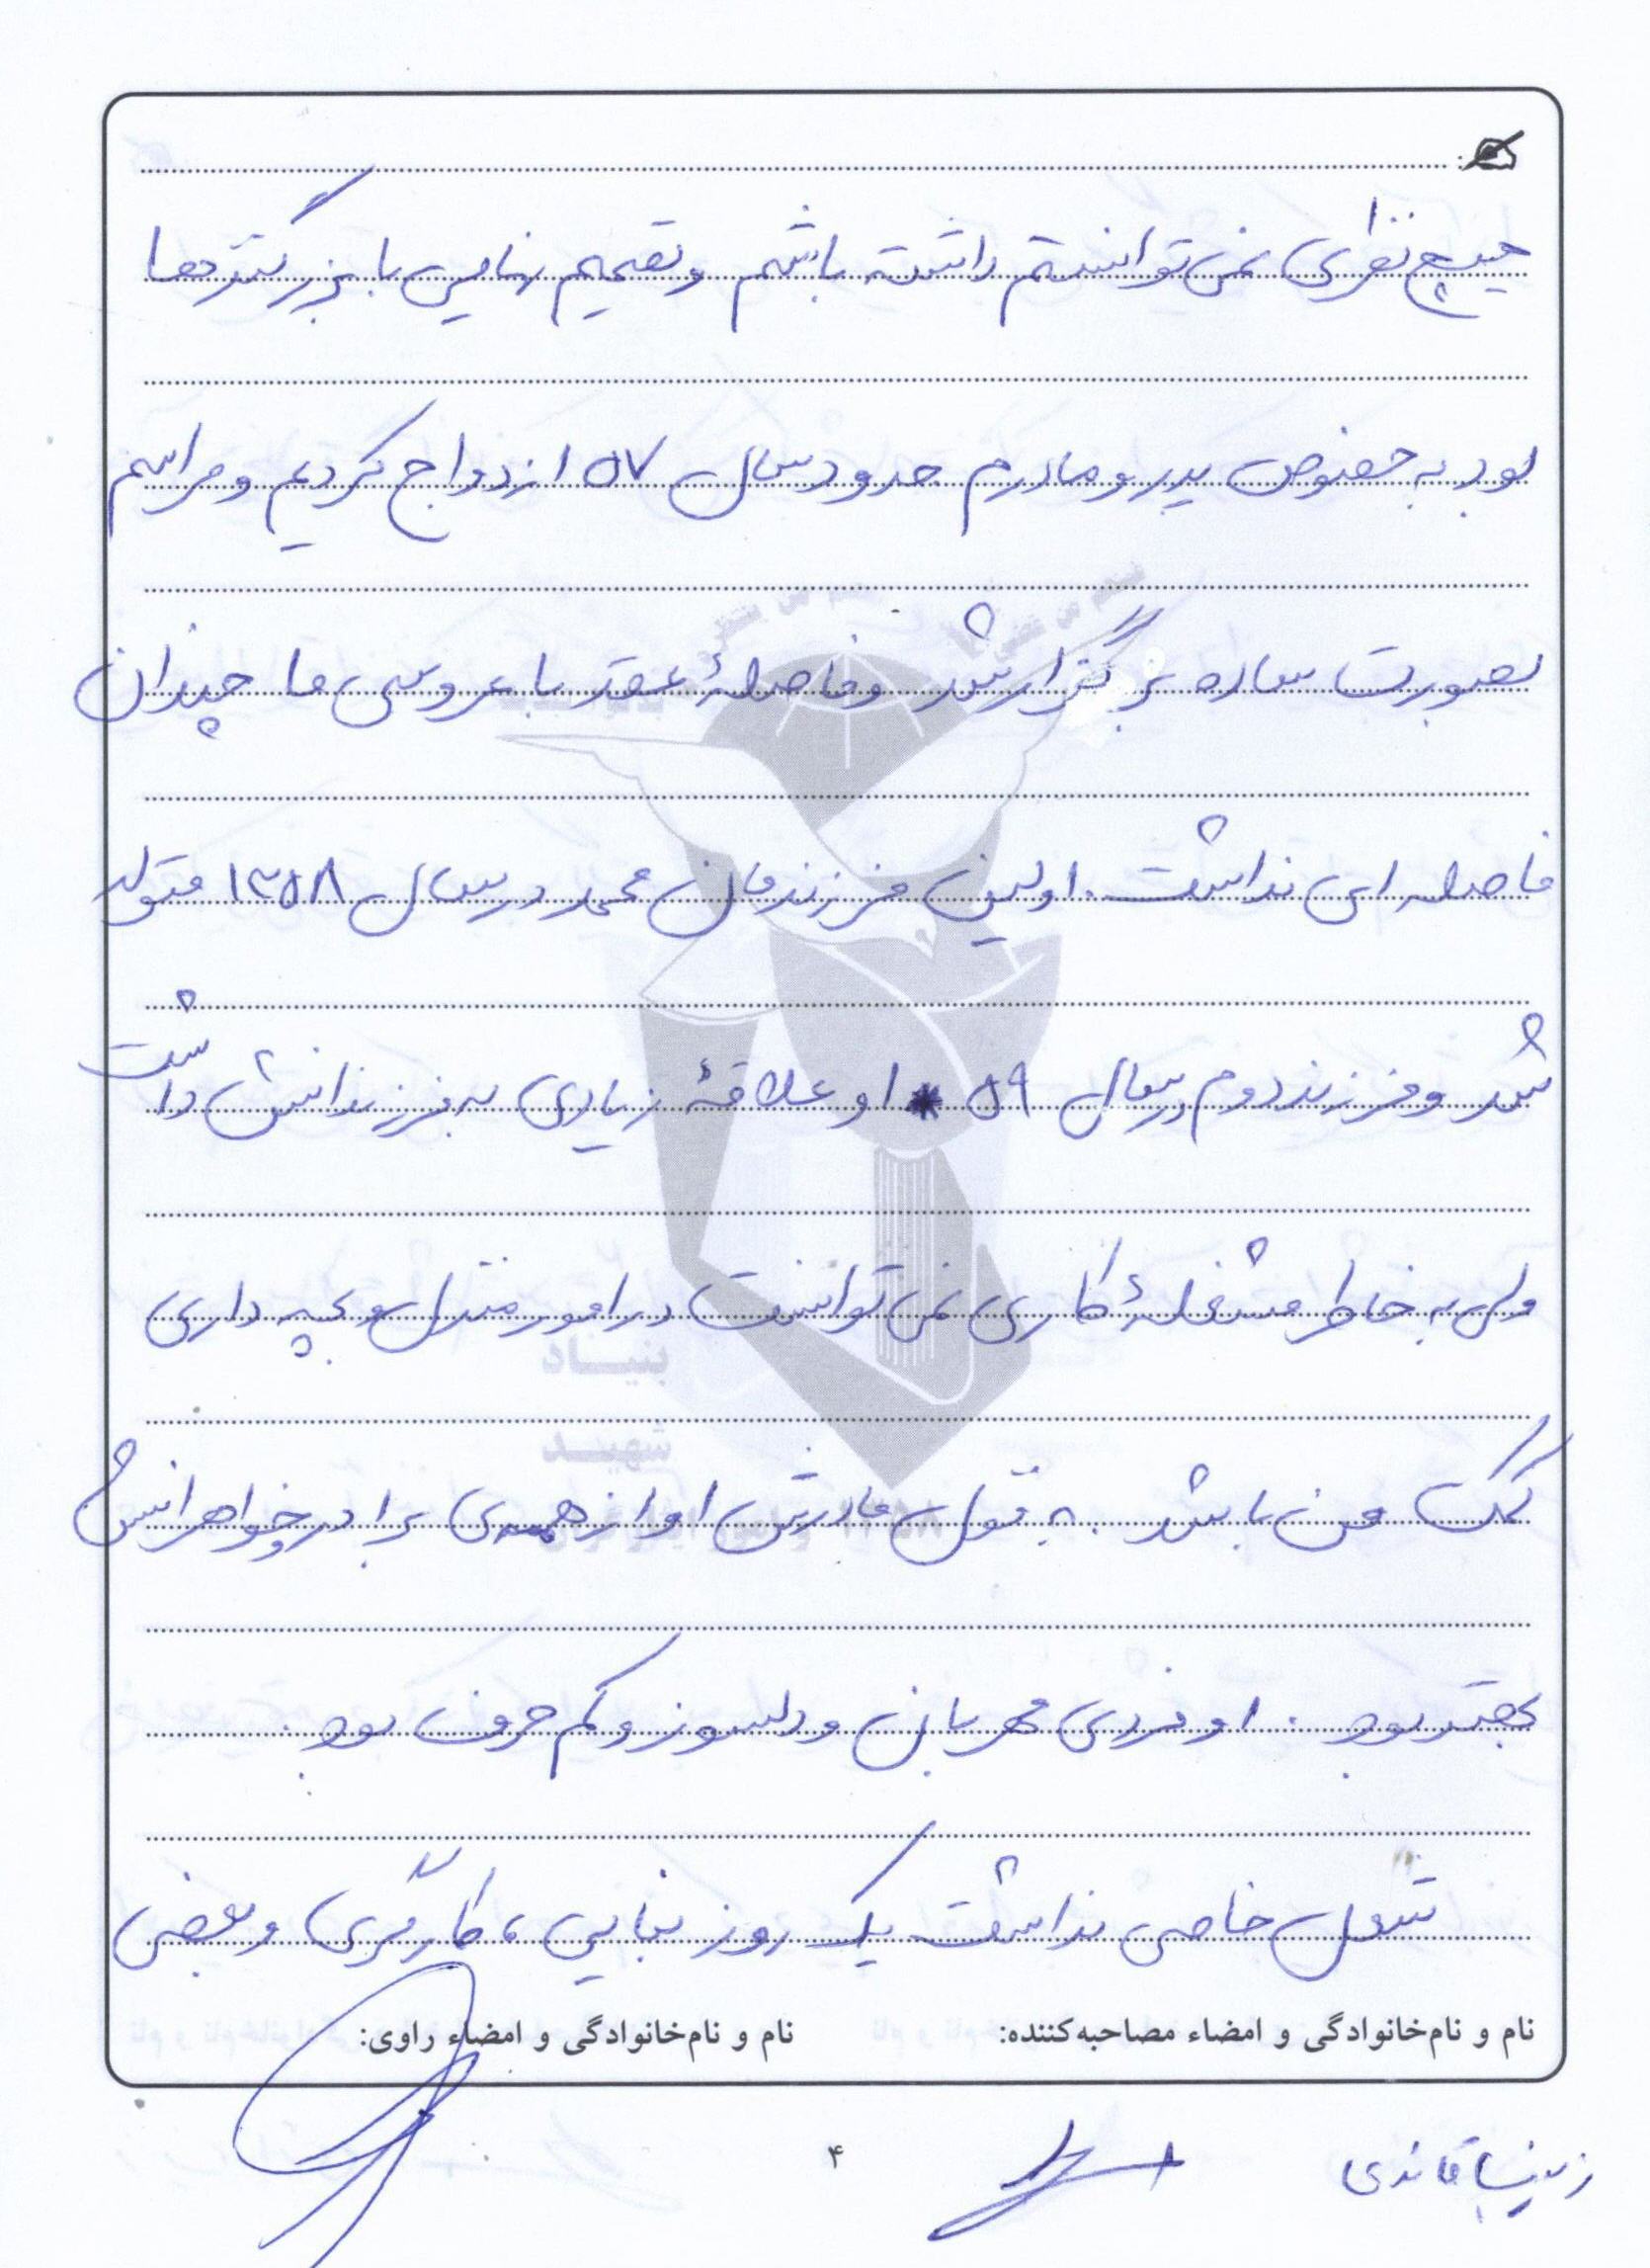 هیچ نظری نمی توانستم داشته باشم و تصمیم نهایی با بزرگترها
بود به خصوص پدر و مادرم حدود سال ۵۷ ازدواج کردیم و مراسم
بصورت ساده برگزار شد و فاصلهٔ عقد با عروسی ما چندان
فاصله ای نداشت. اولین فرزندمان محمد در سال ۱۳۵۸ متولد
شد و فرزند دوم در سال ۵۹ او علاقهٔ زیادی به فرزندانش داشت
ولی به خاطر مشغلهٔ کاری نمی توانست در امور منزل و بچه داری
کمک من باشد. به قول مادرش او از همه ی برادر و خواهرانش
بهتر بود. او فردی مهربان و دلسوز و کم حرف بود.
شغل خاصی نداشت یک روز بنایی، کارگری و بعضی
نام و نام‌خانوادگی و امضاء مصاحبه‌کننده: نام و نام‌خانوادگی و امضاء راوی:
بنیاد
شهید
زینب قائدی
۴